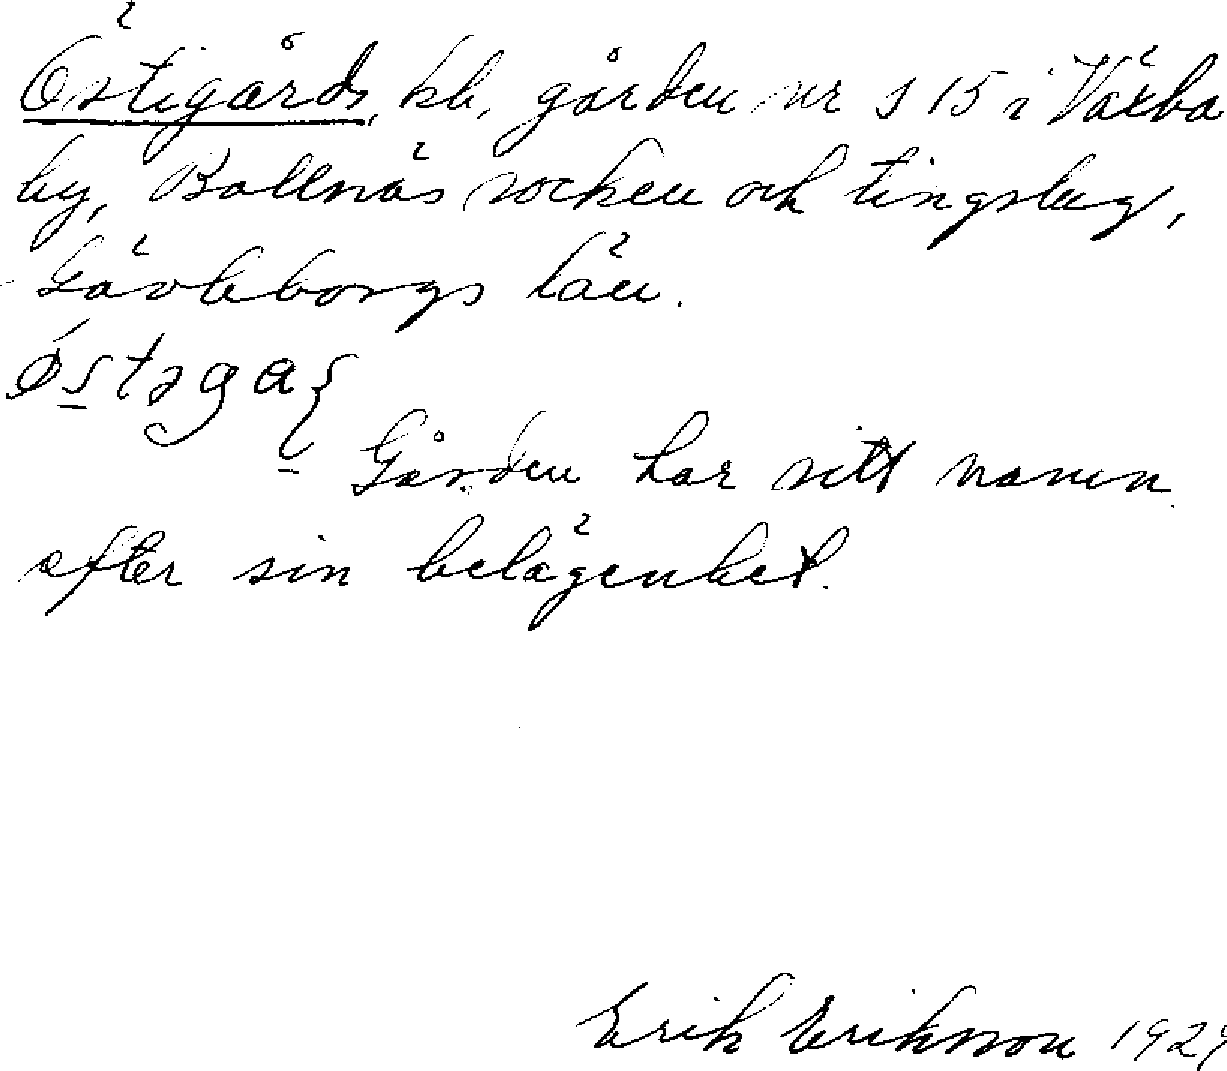 Östigårds, kb, gården nr s 15 i Växbo
by, Bollnäs socken och tingslag,
Gävleborgs län.
Gården har sitt namn
efter sin belägenhet.
Erik Erikson 1929